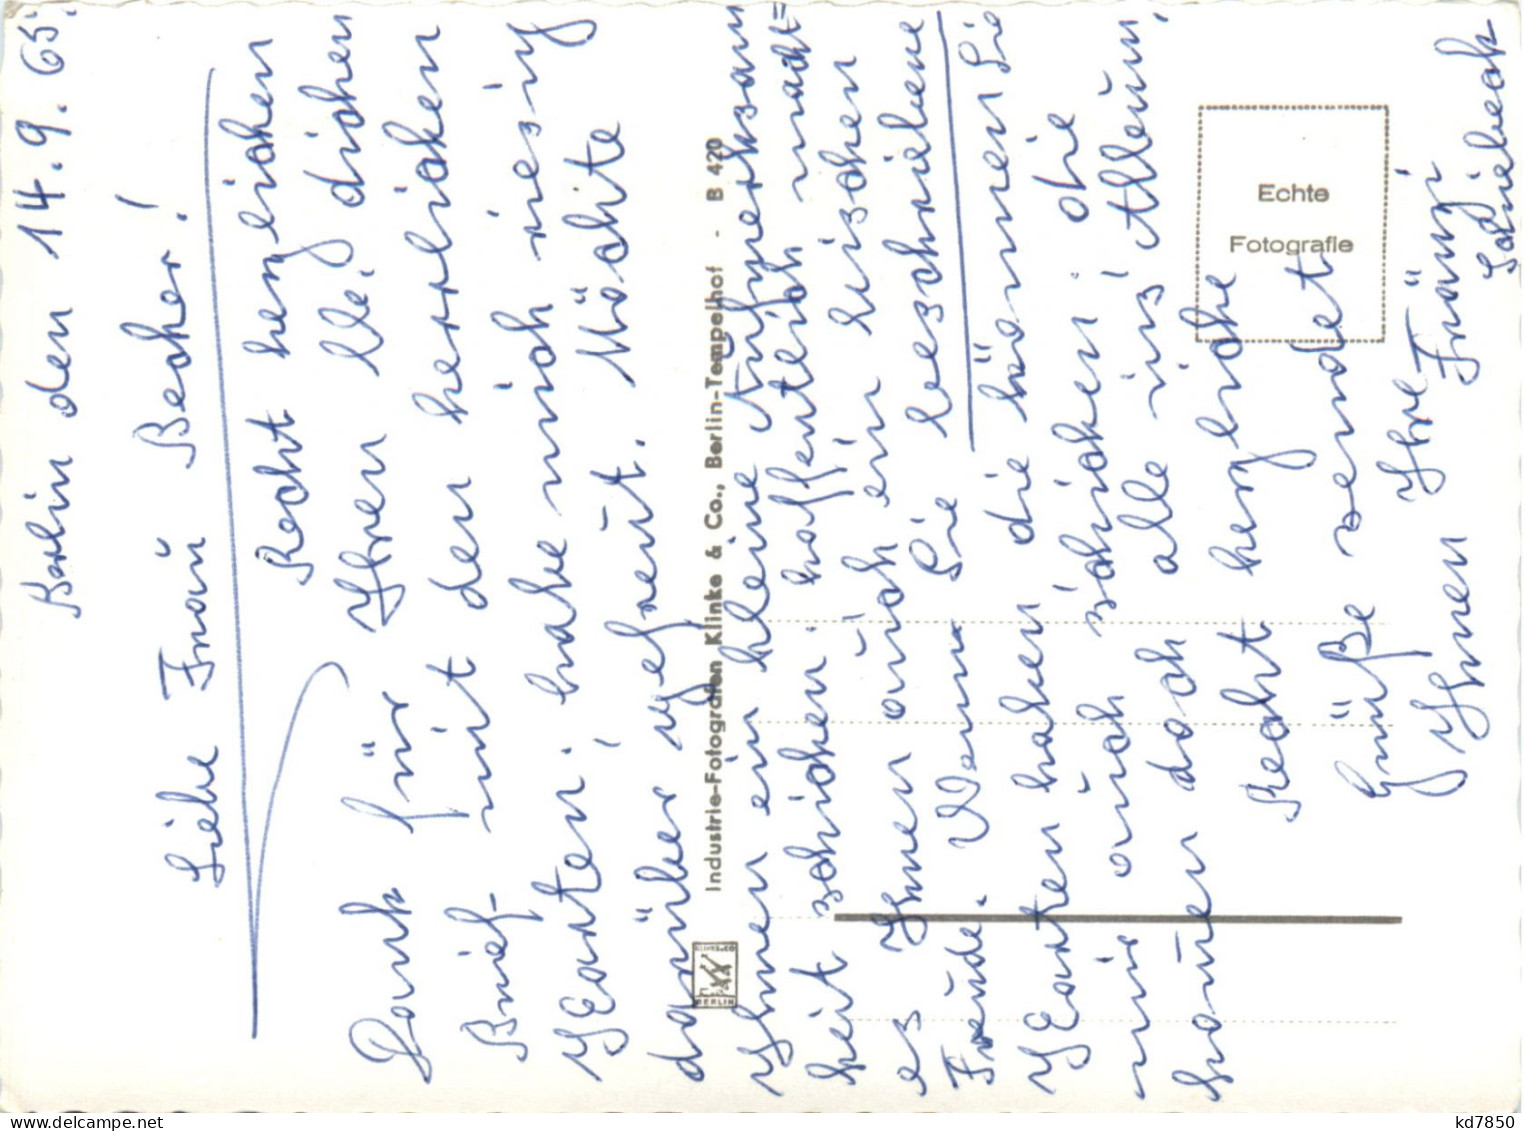 Berlin den 14.9.65.
Liebe Frau Becher!
Recht herzlichen
Dank für Ihren lb. dichen
Brief mit den herrlichen
Karten, habe mich riesig
darüber gefreut. Möchte
Ihnen ein kleine Aufmerksam
keit schicken. hoffentlich macht=
es Ihnen auch ein bischen
Freude. Wenn Sie beschriebene
Karten haben die können Sie
mir auch schicken. die
kommen doch alle ins Album,
Recht herzliche
Grüße sendet
Ihnen Ihre
Fränzi
Industrie-Fotografen Klinke & Co., Berlin-Tempelhof - B 420
BERLIN
Echte
Fotografie
kd7850